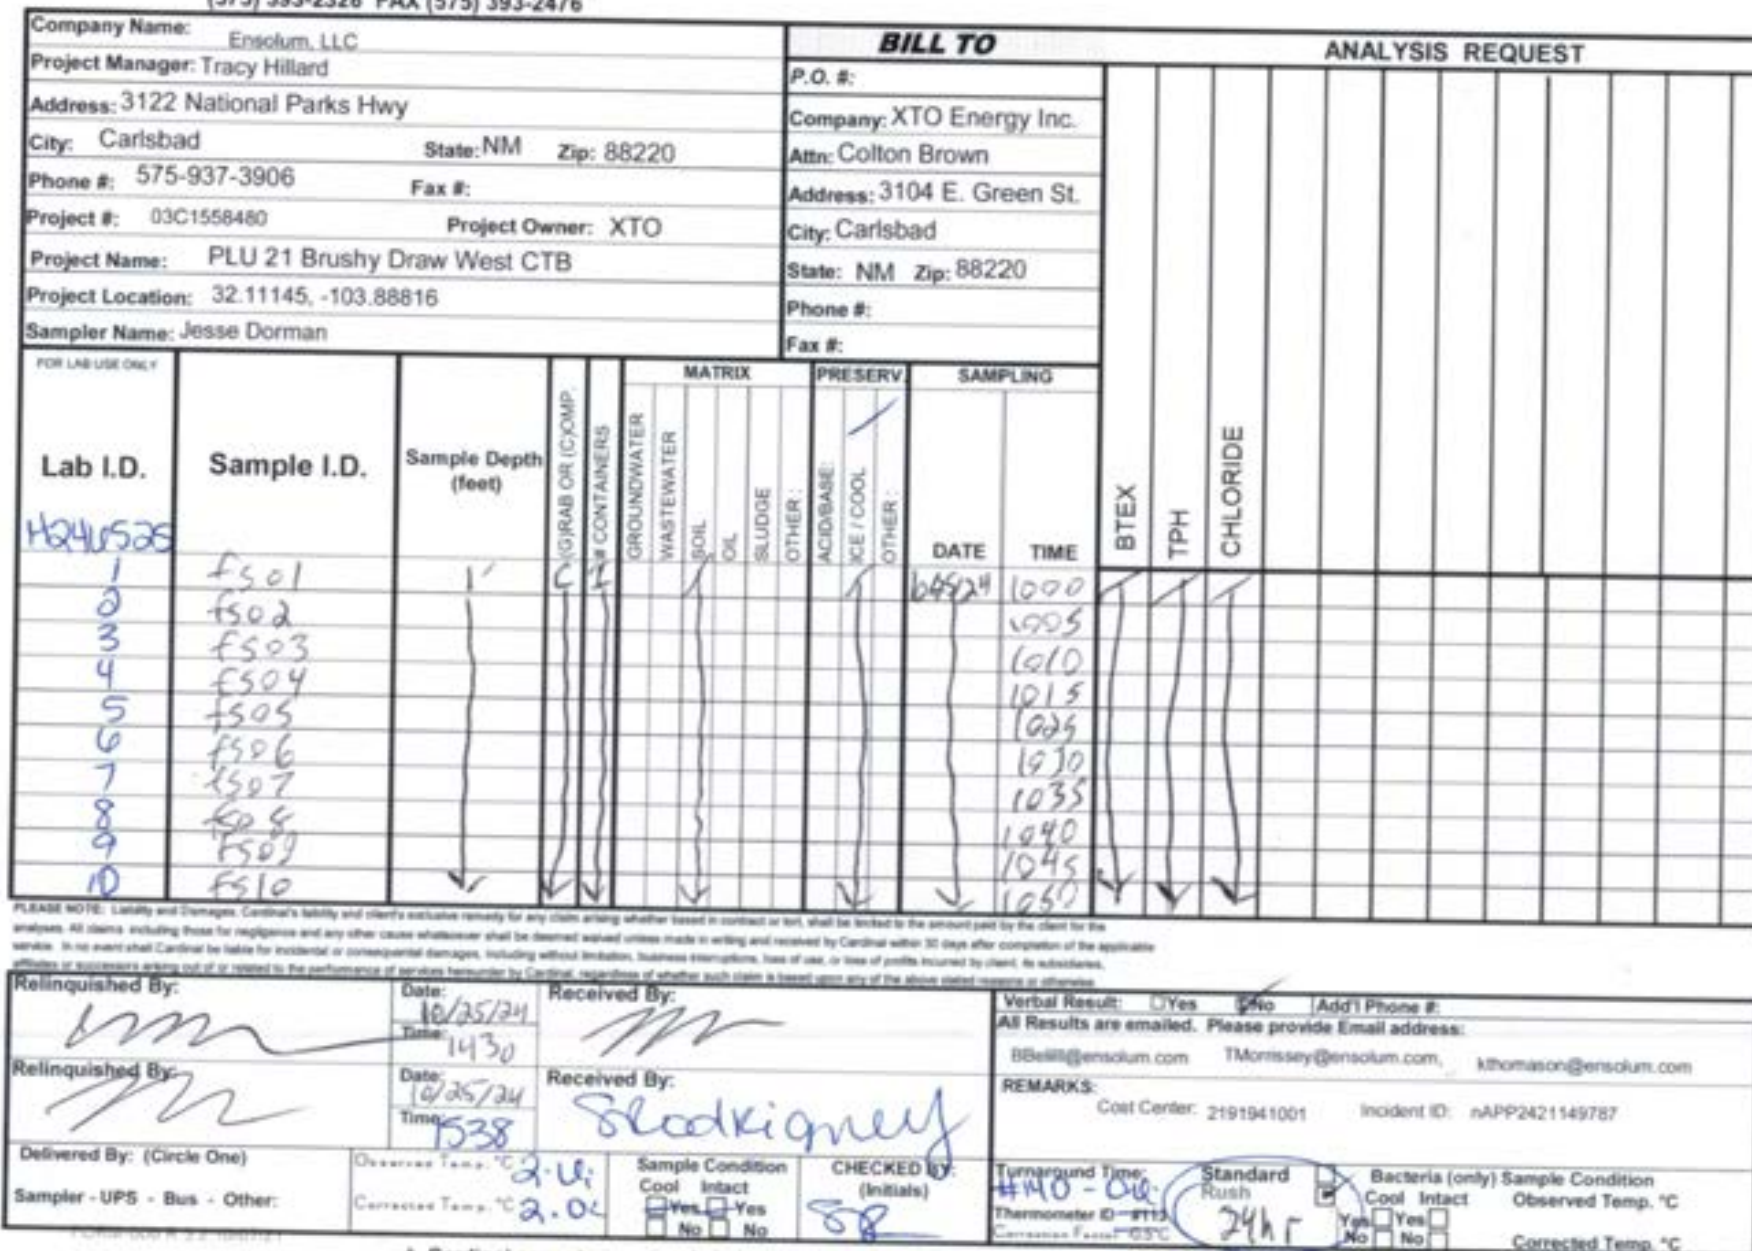 (575) 393-2326 FAX (575) 393-2476
Company Name: Ensolum, LLC
Project Manager: Tracy Hillard
Address: 3122 National Parks Hwy
City: Carlsbad State: NM Zip: 88220
Phone #: 575-937-3906 Fax #:
Project #: 03C1558480 Project Owner: XTO
Project Name: PLU 21 Brushy Draw West CTB
Project Location: 32.11145, -103.88816
Sampler Name: Jesse Dorman
BILL TO
P.O. #:
Company: XTO Energy Inc.
Attn: Colton Brown
Address: 3104 E. Green St.
City: Carlsbad
State: NM Zip: 88220
Phone #:
Fax #:
ANALYSIS REQUEST
FOR LAB USE ONLY
MATRIX PRESERV. SAMPLING
Lab I.D. Sample I.D. Sample Depth (feet) (G)RAB OR (C)OMP. # CONTAINERS GROUNDWATER WASTEWATER SOIL OIL SLUDGE OTHER : ACID/BASE: ICE / COOL OTHER : DATE TIME BTEX TPH CHLORIDE
1 FS01 1' C 1 1000
2 FS02 1005
3 FS03 1010
4 FS04 1015
5 FS05 1025
6 FS06 1030
7 FS07 1035
8 FS08 1040
9 FS09 1045
10 FS10 1050
PLEASE NOTE: Liability and Damages. Cardinal's liability and client's exclusive remedy for any claim arising whether based in contract or tort, shall be limited to the amount paid by the client for the
analyses. All claims including those for negligence and any other cause whatsoever shall be deemed waived unless made in writing and received by Cardinal within 30 days after completion of the applicable
service. In no event shall Cardinal be liable for incidental or consequental damages, including without limitation, business interruptions, loss of use, or loss of profits incurred by client, its subsidiaries,
affiliates or successors arising out of or related to the performance of services hereunder by Cardinal, regardless of whether such claim is based upon any of the above stated reasons or otherwise.
Relinquished By: Date: 10/25/24 Time: 1430 Received By:
Relinquished By: Date: 10/25/24 Time: 1538 Received By: SRodriguez
Verbal Result: Yes No Add'l Phone #:
All Results are emailed. Please provide Email address:
TMorrissey@ensolum.com, kthomason@ensolum.com
REMARKS:
Cost Center: 2191941001 Incident ID: nAPP2421149787
Delivered By: (Circle One)
Sampler - UPS - Bus - Other:
Observed Temp. °C
Corrected Temp. °C
Sample Condition
Cool Intact
Yes Yes
No No
CHECKED BY:
(Initials)
SR
Turnaround Time: Standard
Rush
24hr
#140
Thermometer ID #113
Correction Factor -0.5°C
Bacteria (only) Sample Condition
Cool Intact Observed Temp. °C
Yes Yes
No No Corrected Temp. °C